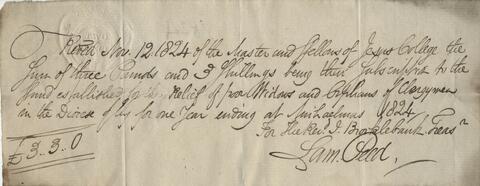 Recd Nov. 12. 1824 of the Master and Fellows of Jesus College the
Sum of three Pounds and 3 Shillings being their Subscription to the
Fund established for the Relief of poor Widows and Orphans of Clergymen
in the Diocese of Ely for one Year ending at Michaelmas 1824
For the Revd J. Brocklebank Treasr
£3.3.0